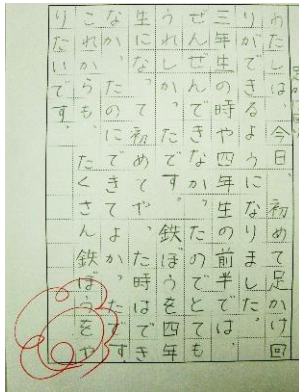 わたしは、今日、初めて足かけ回
りができるようになりました。
三年生の時や四年生の前半では、
ぜんぜんできなかったのでとても
うれしかったです。鉄ぼうを四年
生になって初めてやった時はでき
なかったのにできてよかったです。
これからも、たくさん鉄ぼうをや
りたいです。